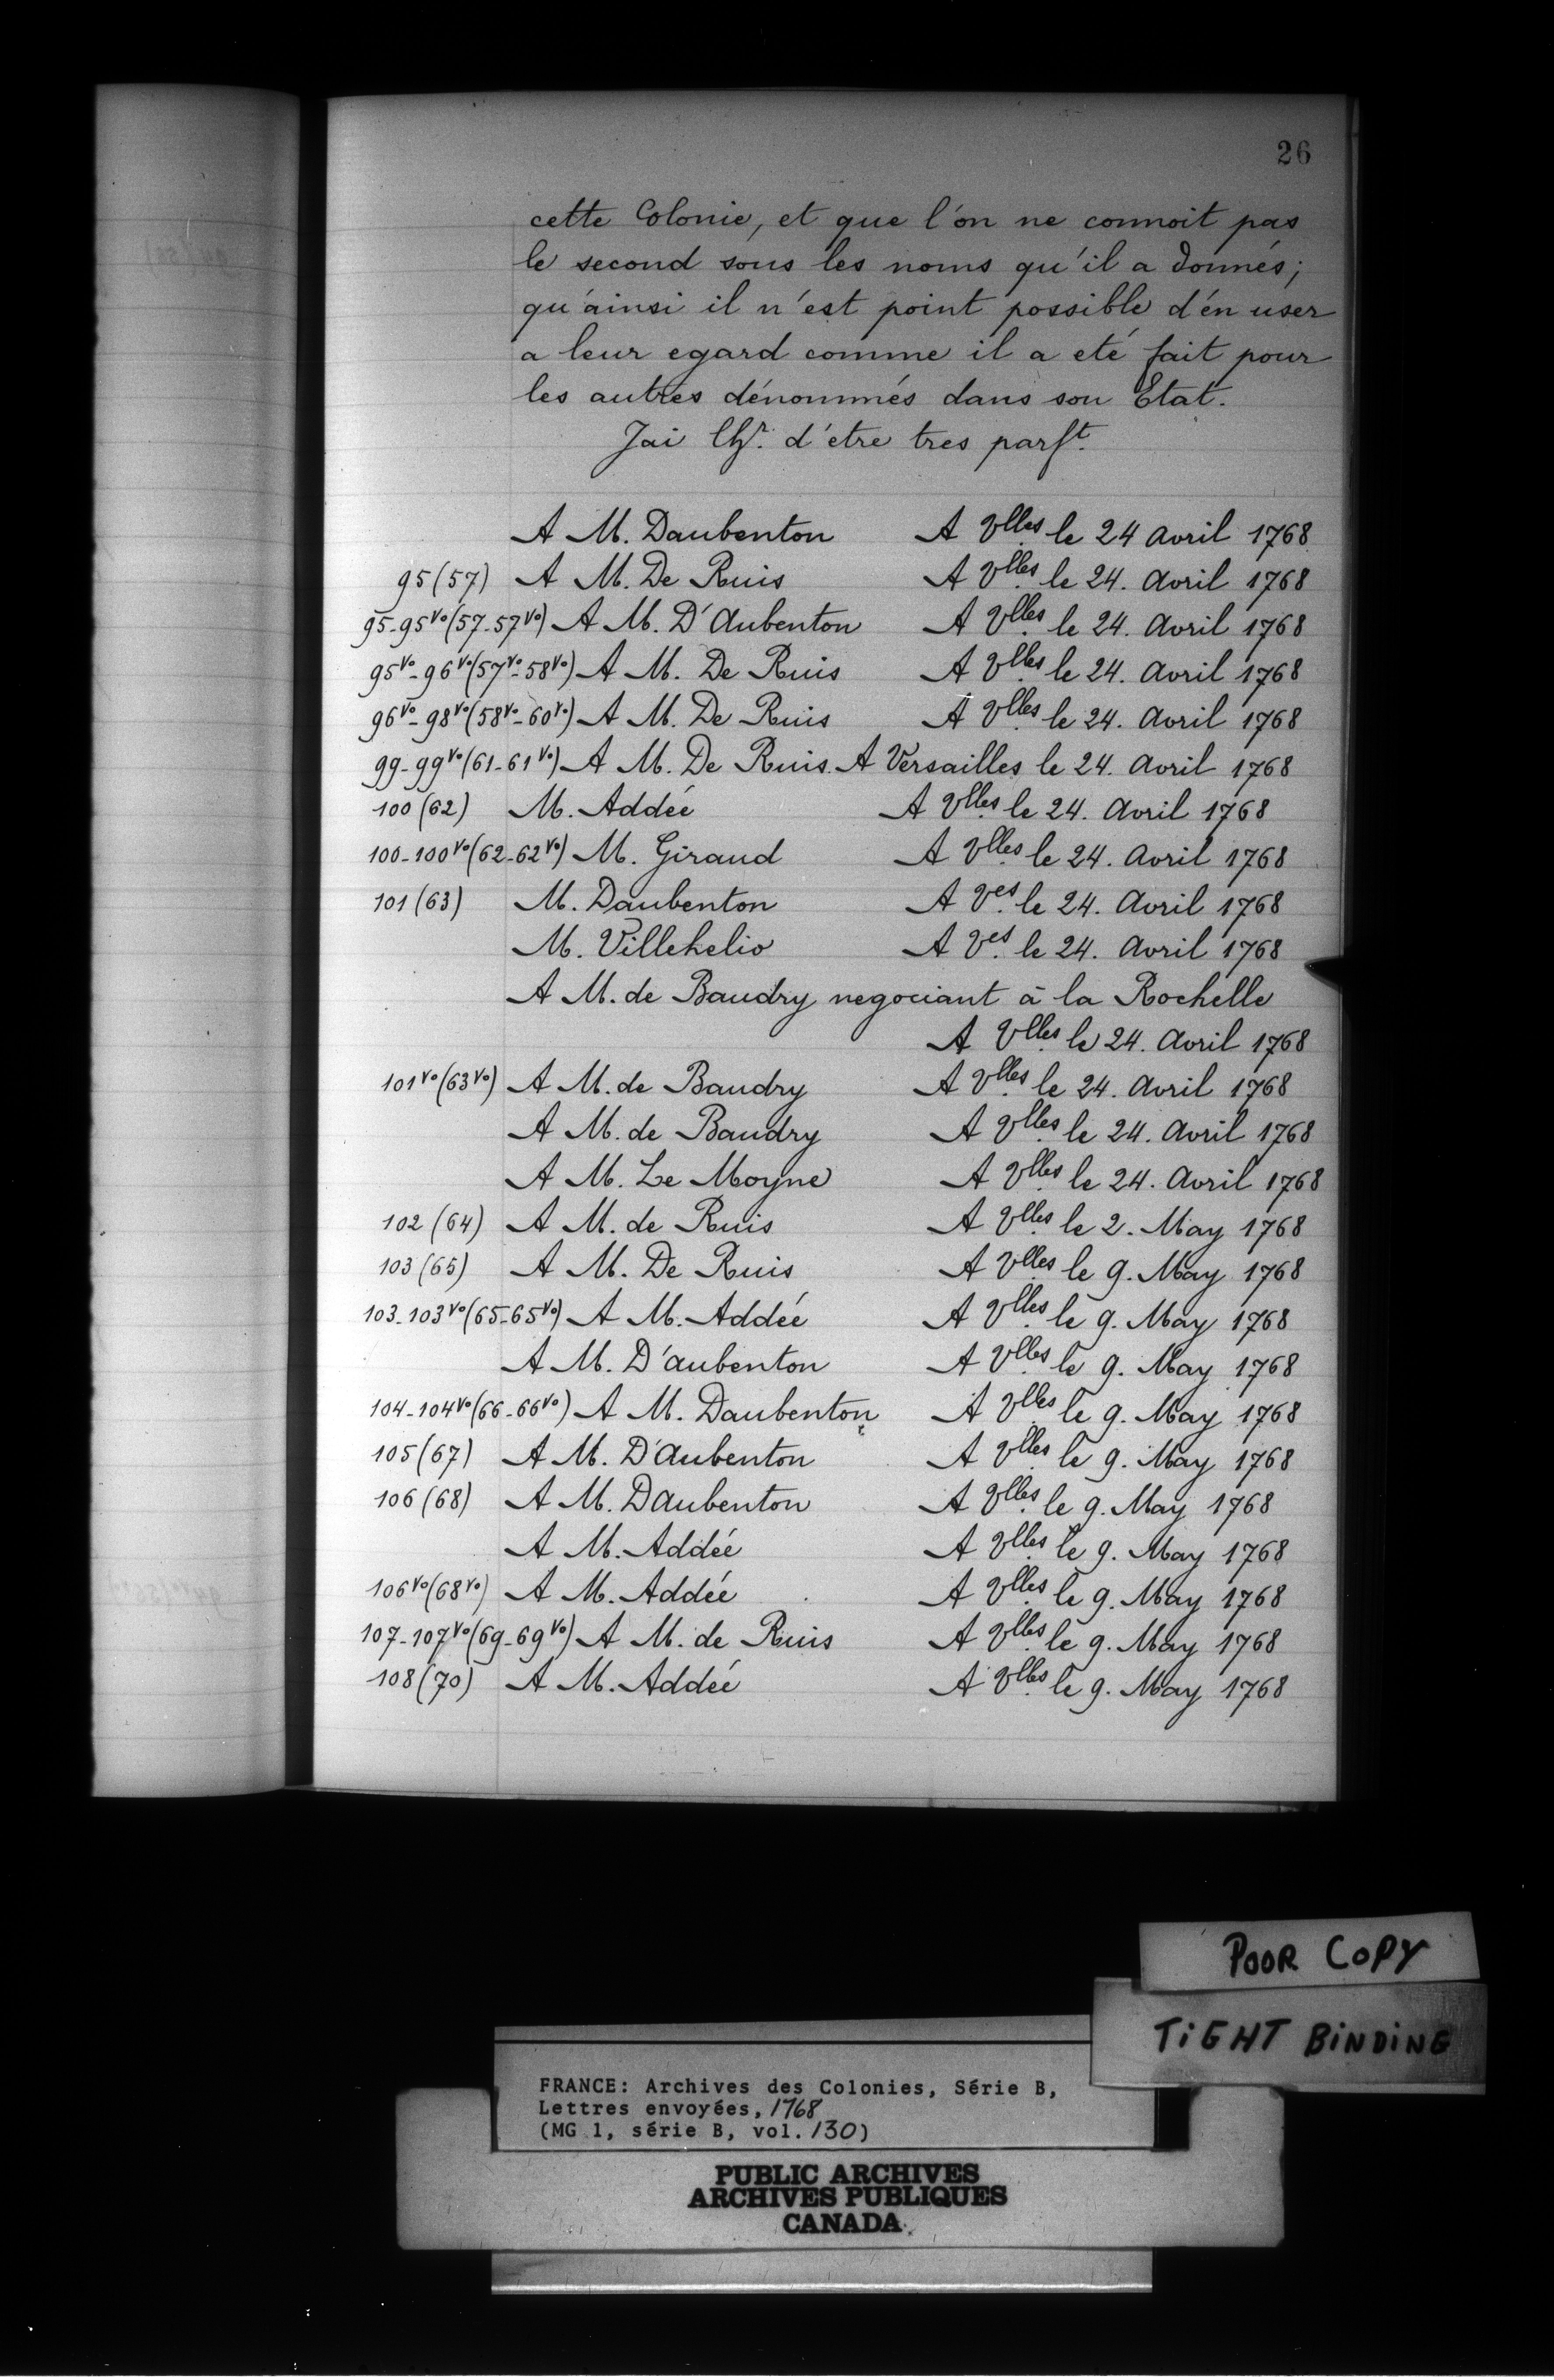 26
cette Colonie, et que l'on ne connoit pas
le second sous les noms qu'il a donnés;
qu'ainsi il n'est point possible d'en user
a leur egard comme il a eté fait pour
les autres dénommés dans son Etat.
Jai lhr. d'etre tres parft.
A M. Daubenton A Vlles le 24 Avril 1768
95 (57) A M. De Ruis A Vlles le 24. Avril 1768
95-95vo (57-57vo) A M. D'Aubenton A Vlles le 24. Avril 1768
95vo-96vo (57vo-58vo) A M. De Ruis A Vlles le 24. Avril 1768
96vo-98vo (58vo-60vo) A M. De Ruis A Vlles le 24. Avril 1768
99-99vo (61-61vo) A M. De Ruis. A Versailles le 24. Avril 1768
100 (62) M. Addée A Vlles le 24. Avril 1768
100-100vo (62-62vo) M. Giraud A Vlles le 24. Avril 1768
101 (63) M. Daubenton A Ves le 24. Avril 1768
M. Villehelio A Ves le 24. Avril 1768
A M. de Baudry negociant à la Rochelle
A Vlles le 24. Avril 1768
101vo (63vo) A M. de Baudry A Vlles le 24. Avril 1768
A M. de Baudry A Vlles le 24. Avril 1768
A M. Le Moyne A Vlles le 24. Avril 1768
102 (64) A M. de Ruis A Vlles le 2. May 1768
103 (65) A M. De Ruis A Vlles le 9. May 1768
103-103vo (65-65vo) A M. Addée A Vlles le 9. May 1768
A M. D'aubenton A Vlles le 9. May 1768
104-104vo (66-66vo) A M. Daubenton A Vlles le 9. May 1768
105 (67) A M. D'Aubenton A Vlles le 9. May 1768
106 (68) A M. DAubenton A Vlles le 9. May 1768
A M. Addée A Vlles le 9. May 1768
106vo (68vo) A M. Addée A Vlles le 9. May 1768
107-107vo (69-69vo) A M. de Ruis A Vlles le 9. May 1768
108 (70) A M. Addée A Vlles le 9. May 1768
POOR COPY
TIGHT BINDING
FRANCE: Archives des Colonies, Série B,
Lettres envoyées, 1768
(MG 1, série B, vol. 130)
PUBLIC ARCHIVES
ARCHIVES PUBLIQUES
CANADA